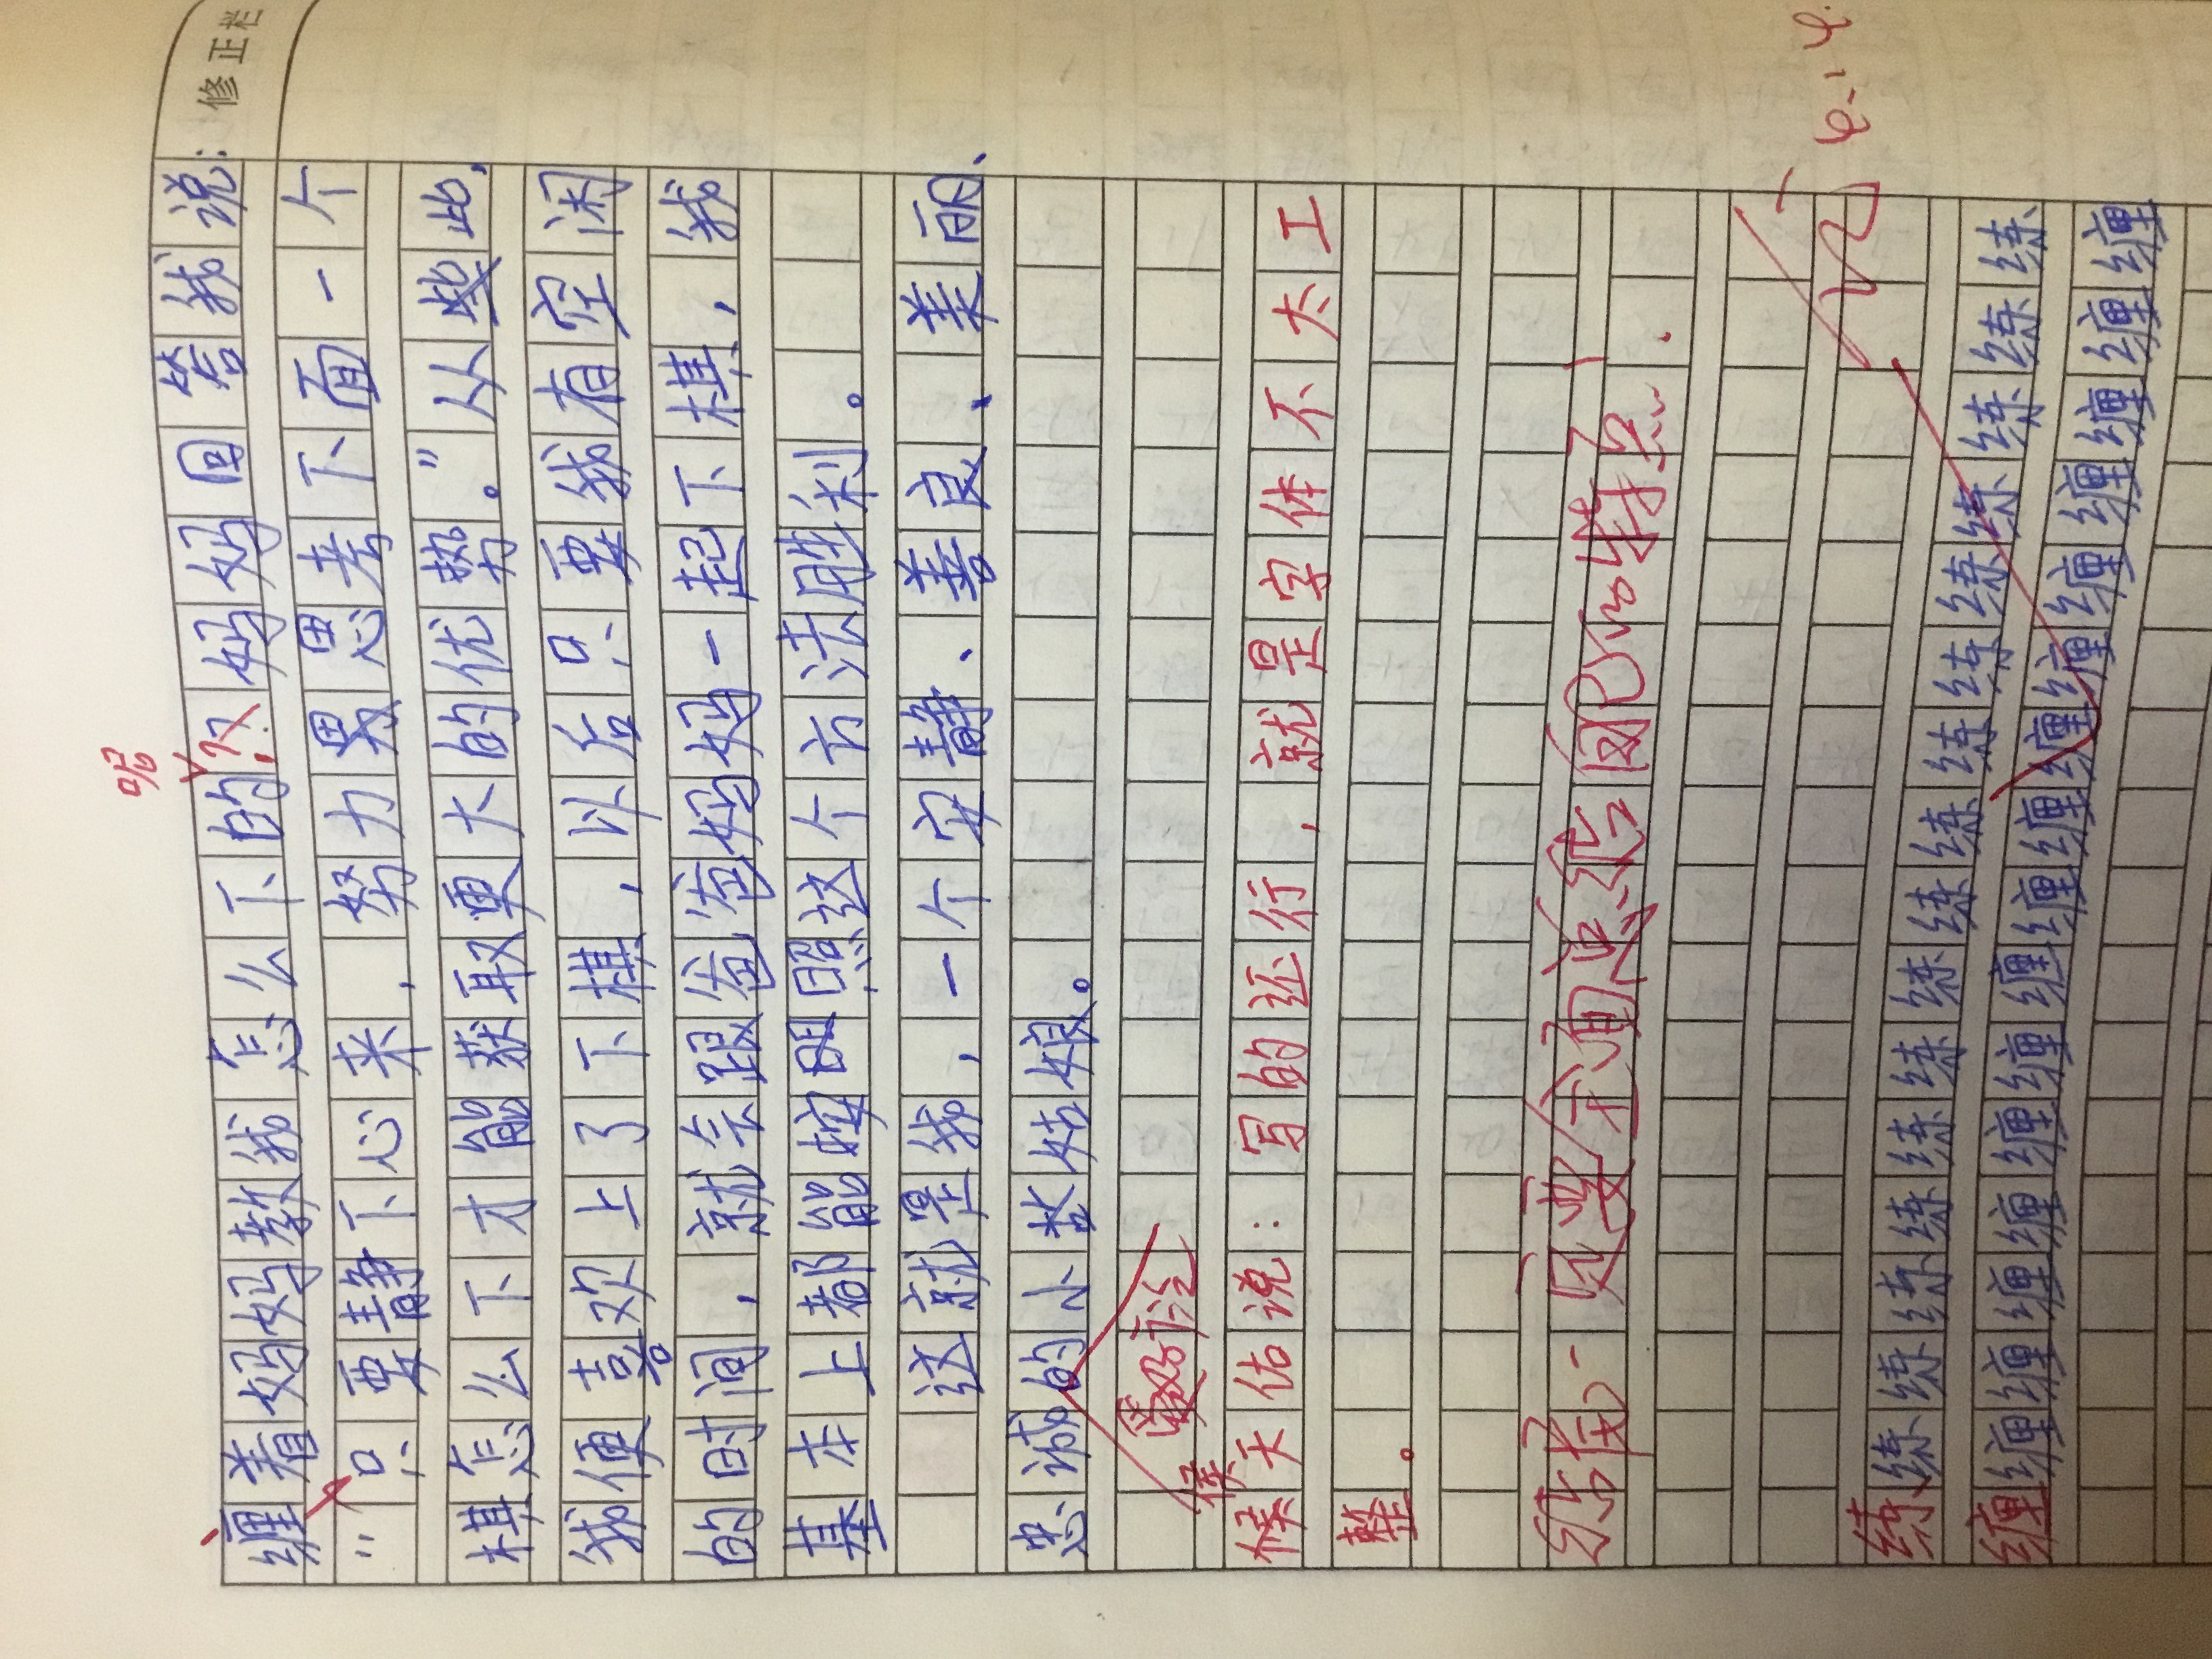 修正栏
呢
缠着妈妈教我怎么下的?妈妈回答我说:
“只要静下心来,努力思考下面一个
棋怎么下才能获取更大的优势。”从此,
我便喜欢上了下棋,以后只要我有空闲
的时间,就会跟爸爸妈妈一起下棋,我
基本上都能按照这个方法胜利。
这就是我,一个安静、善良、美丽、
忠诚的小姑娘。
候天佑说:写的还行,就是字体不太工
整。
练练练练练练练练练练练练练练练练
缠缠缠缠缠缠缠缠缠缠缠缠缠缠缠缠